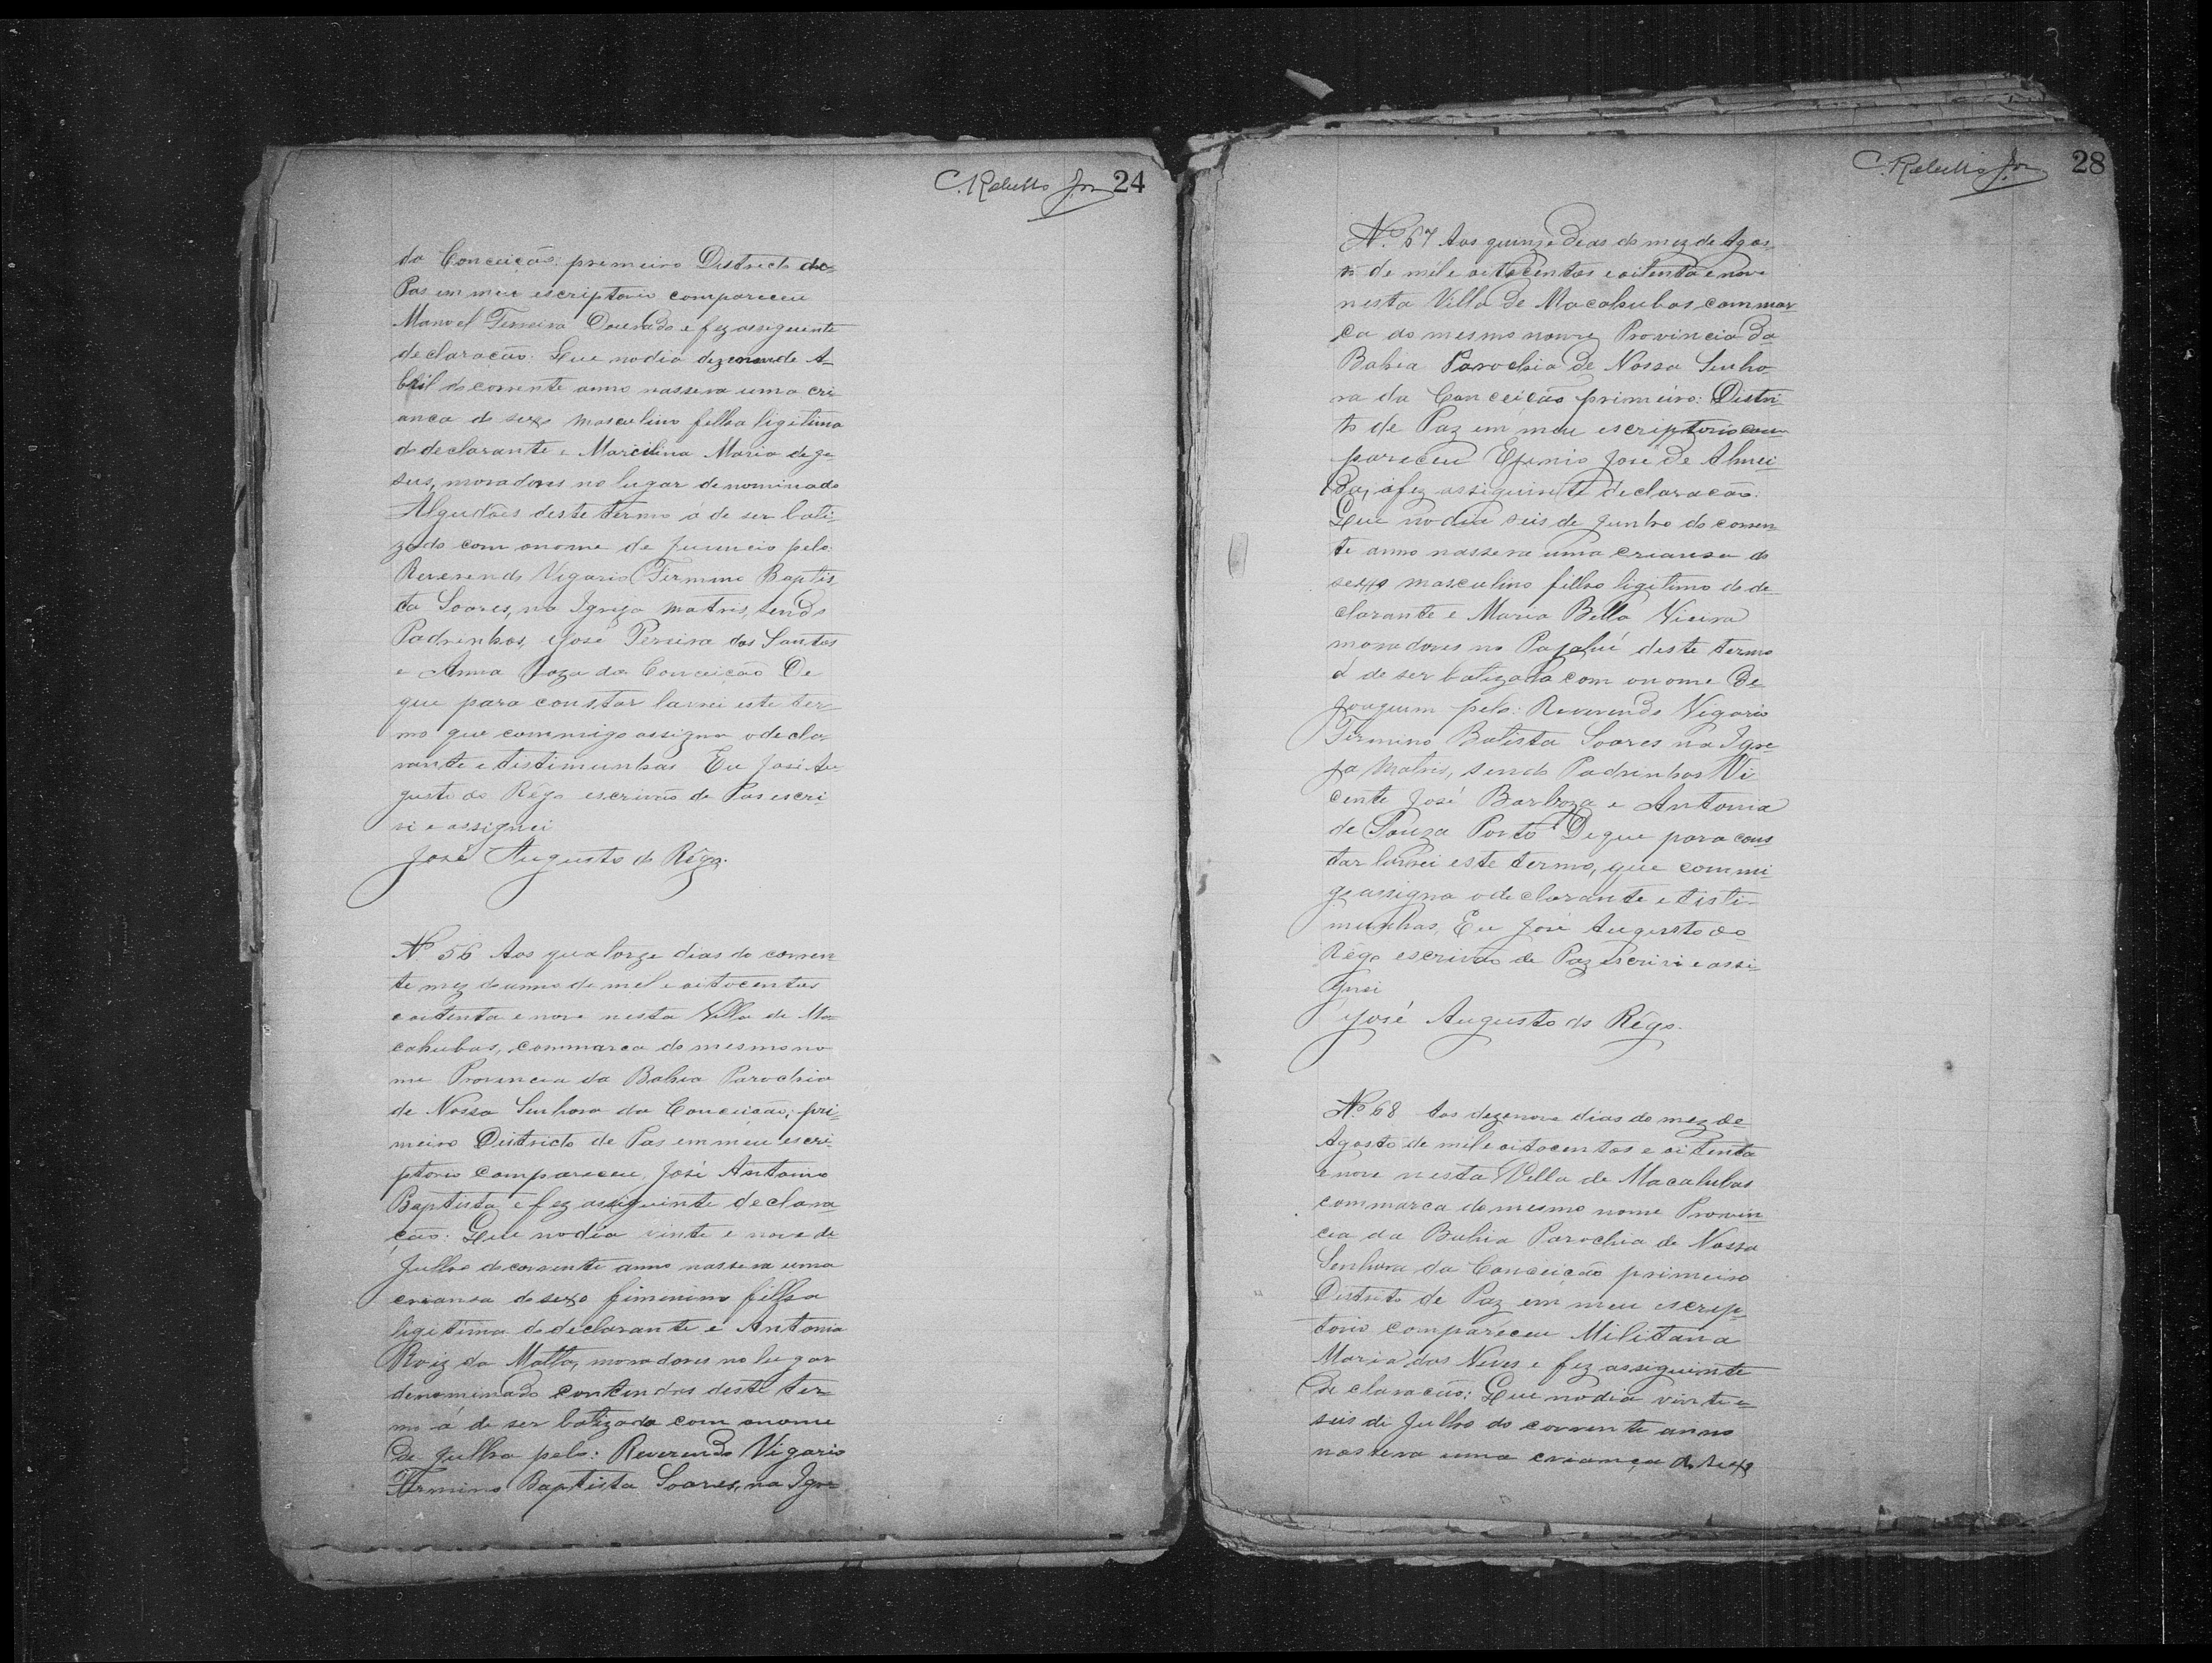 24
da Conceição: primeiro Districto de
Pas em meu escriptorio compareceu
Manoel Ferreira Dourado e fez asseguente
declaração: Que no dia dezenove de A-
bril do corrente anno nassera uma cri-
anca do sexo masculino filho ligitimo
do declarante e Marcilina Maria de Je-
sus, moradores no lugar denominado
Algudões deste termo á de ser bati-
zado com onome de pelo:
Reverendo Vigario Firmino Baptis-
ta Soares, na Igreja matris, sendo
Padrinhos, José Pereira dos Santos
e Anna Roza da Conceição De
que para constar lavrei este ter-
mo que commigo assigna o decla-
rante e testimunhas Eu José Au-
gusto do Rêgo escrivão de Pas escri-
vi e assignei
José Augusto do Rêgo.
Nº 56 Aos quatorze dias do corren-
te mez do anno de mil e oitocentos
e oitenta e nove nesta Villa de Ma-
cahubas, commarca do mesmo no-
me Provincia da Bahia Parochia
de Nossa Senhora da Conceição; pri-
meiro Districto de Pas em meu escri-
ptorio compareceu José Antonio
Baptista e fez asseguinte declara-
ção: Que nodia vinte e nove de
Julho do corrente anno nassera uma
criansa do sexo fiminino filha
ligitima do declarante e Antonia
Roiz da Matta, moradores no lugar
denominado Contendas deste ter-
mo á de ser batizada com onome
de Julha pelo: Reverendo Vigario
Firmino Baptista Soares, na Igre-
28
Nº 67 Aos quinze dias do mez de Agos-
to de mil e oitocentos e oitenta e nove
nesta Villa de Macahubas commar-
ca do mesmo nome Provincia da
Bahia Parochia de Nossa Senho-
ra da Conceição primeiro: Distri-
to de Paz em meu escriptorio com-
pareceu José de Almei-
da, e fez assiguinte declaração:
Que nodia seis de Junho do corren-
te anno nassera uma criansa do
sexo masculino filho ligitimo do de-
clarante e Maria Bella Vieira
moradores no Pajahú deste termo
á de ser batizada com onome de
Joaquim pelo: Reverendo Vigario
Firmino Batista Soares na Igre-
ja Matris, sendo Padrinhos Vi-
cente José Barboza e Antonia
de Souza Porto De que para cons-
tar lavrei este termo, que commi-
go assigna o declarante e testi-
munhas, Eu José Augusto do
Rêgo escrivão de Paz escrivi e assi-
gnei
José Augusto do Rêgo.
Nº 68 Aos dezenove dias do mez de
Agosto de mil e oitocentos e oitenta
e nove nesta Villa de Macahubas
commarca do mesmo nome Provin-
cia da Bahia Parochia de Nossa
Senhora da Conceição primeiro
Distrito de Paz em meu escrip-
torio compareceu Militana
Maria das Neves e fez assiguinte
declaração: Que nodia vinte e
seis de Julho do corrente anno
nassera uma criança do sexo